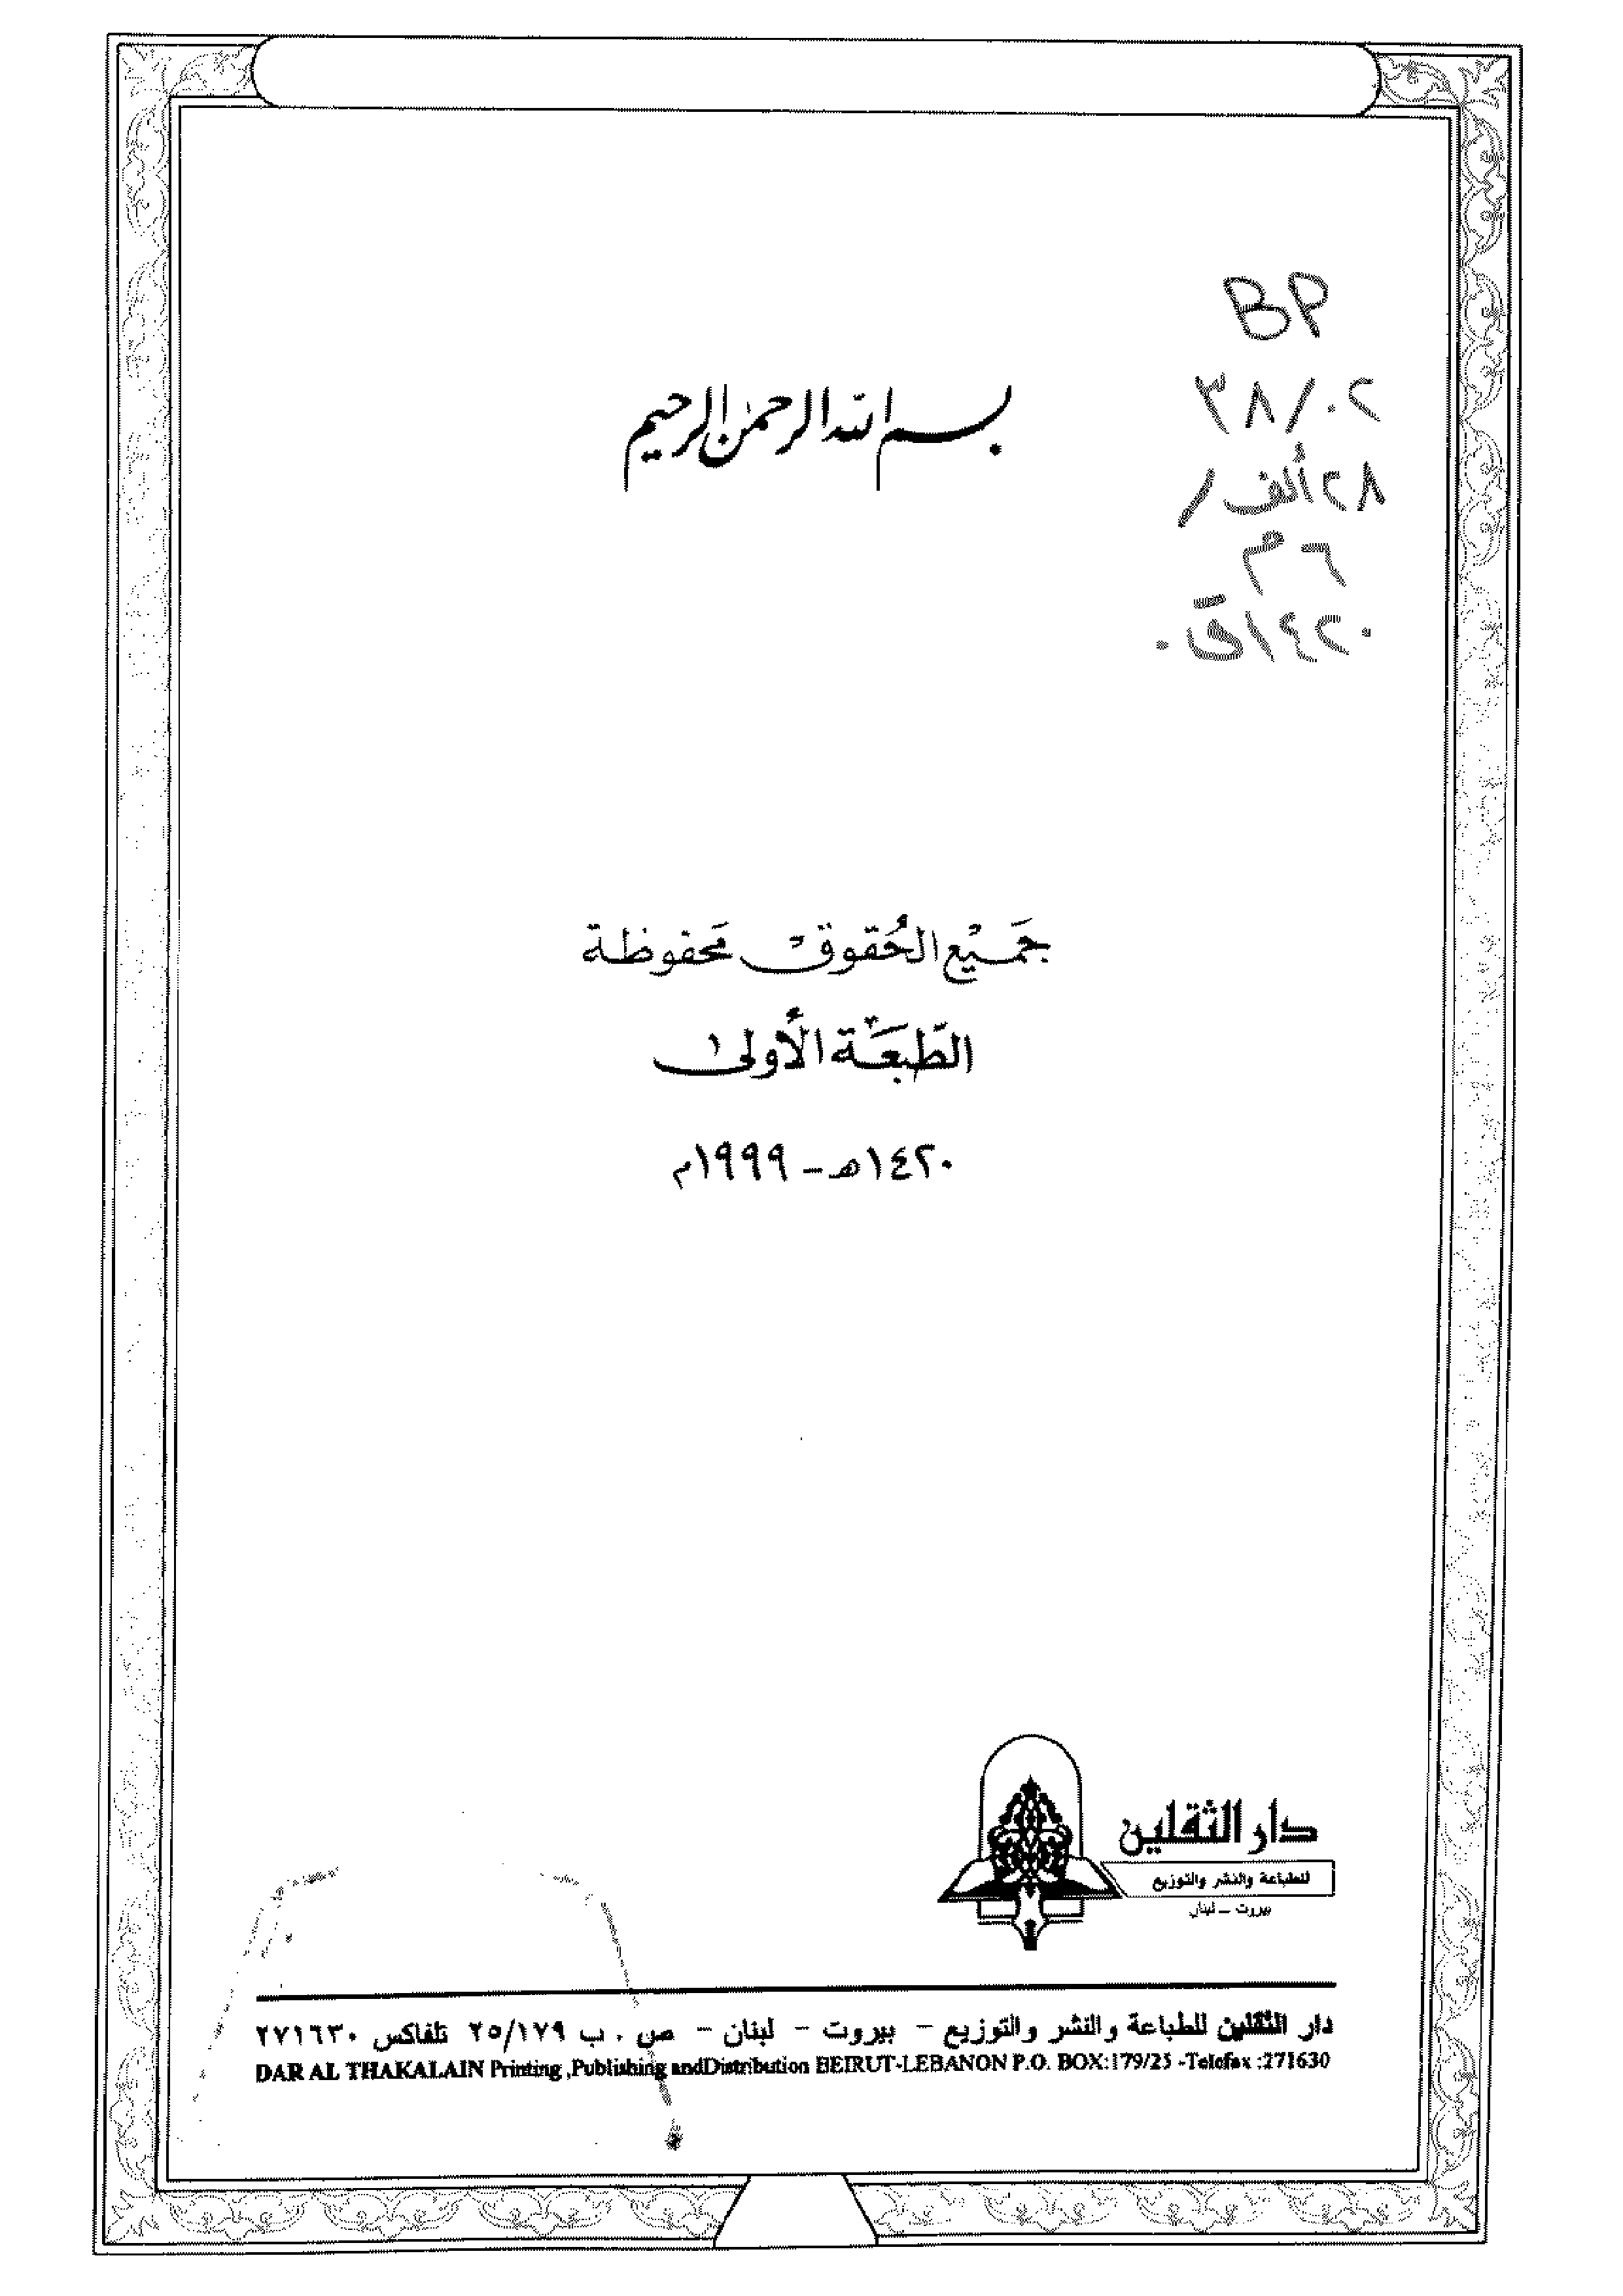 BP
٣٨/٠٢
٢٨ألف/
٦م
١٤٢٠ق.
بسم الله الرحمن الرحيم
جَميْع الحُقوقْ مَحفوظة
الطَبْعَة الأُولىٰ
١٤٢٠هـ - ١٩٩٩م
دار الثقلين
للطباعة والنشر والتوزيع
بيروت - لبنان
دار الثقلين للطباعة والنشر والتوزيع - بيروت - لبنان - ص . ب ٢٥/١٧٩ تلفاكس ٢٧١٦٣٠
DAR AL THAKALAIN Printing ,Publishing andDistribution BEIRUT-LEBANON P.O. BOX:179/25 -Telefax :271630